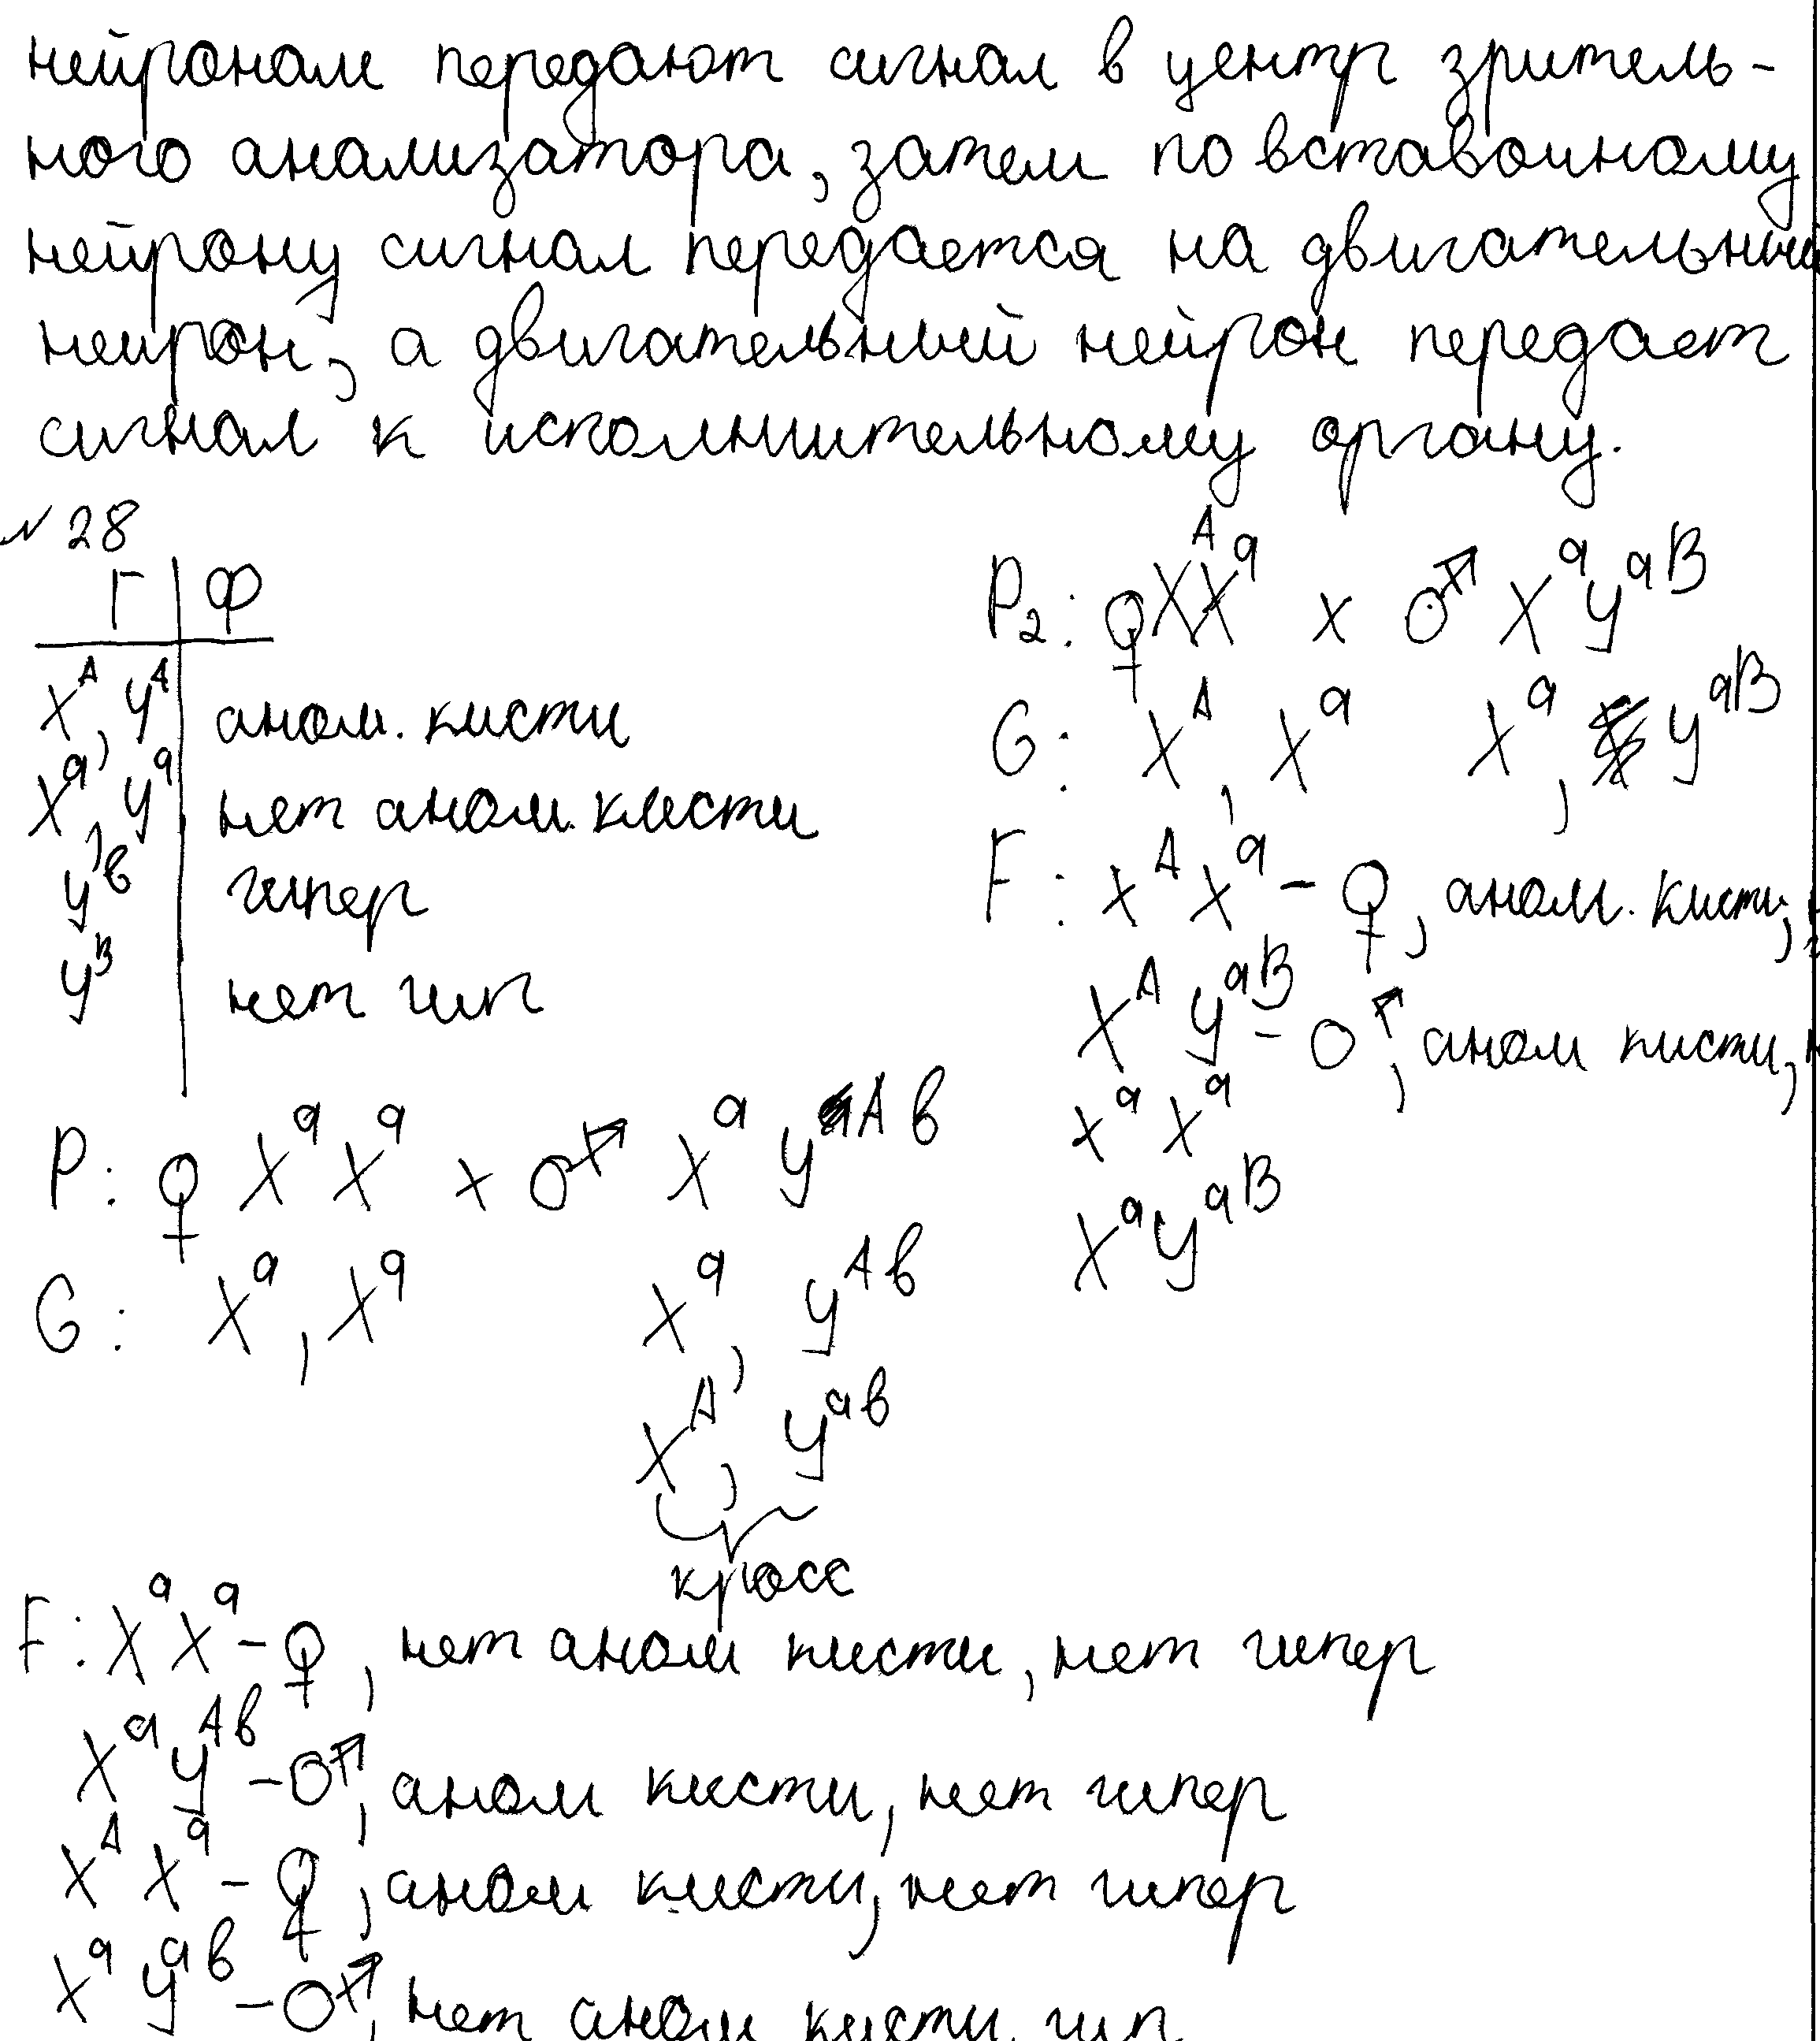 нейронам передают сигнал в центр зритель-
ного анализатора, затем по вставочному
нейрону сигнал передается на двигательный
нейрон, а двигательный нейрон передает
сигнал к исполнительному органу.
№ 28
Г | Ф
X^A, Y^A | аном. кисти
X^a, Y^a | нет аном. кисти
Y^в | гипер
Y^B | нет гип
P: ♀ X^a X^a × ♂ X^a Y^Aв
G: X^a, X^a X^a, Y^Aв
X^A, Y^aв
кросс
F: X^a X^a - ♀, нет аном кисти, нет гипер
X^a Y^Aв - ♂, аном кисти, нет гипер
X^A X^a - ♀, аном кисти, нет гипер
X^a Y^aв - ♂, нет аном кисти, гип
P₂: ♀ X^A X^a × ♂ X^a Y^aB
G: X^A, X^a X^a, Y^aB
F: X^A X^a - ♀, аном. кисти,
X^A Y^aB - ♂, аном кисти,
X^a X^a
X^a Y^aB